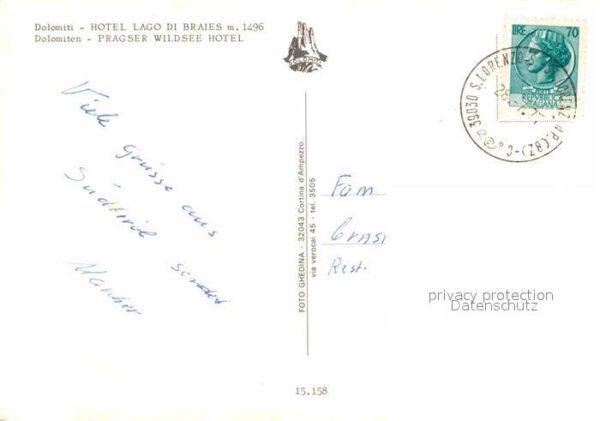 Dolomiti - HOTEL LAGO DI BRAIES m. 1496
Dolomiten - PRAGSER WILDSEE HOTEL
Viele grüsse aus
Südtirol sendet
FOTO GHEDINA - 32043 Cortina d'Ampezzo
via verocai 45 - tel. 3505
15.158
LIRE 70
REPUBBLICA
ITALIANA
39030 S. LORENZO
(BZ)
Fam
Rest.
privacy protection
Datenschutz